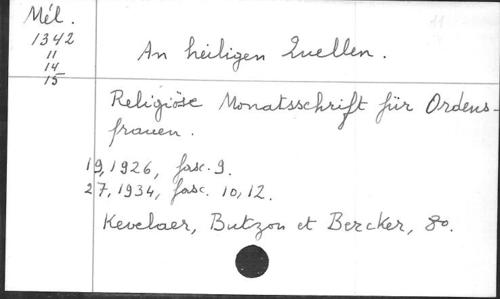 Mél.
1342
11
14
15
An heiligen Quellen.
Religiöse Monatsschrift für Ordens-
frauen.
19, 1926, fasc. 9.
27, 1934, fasc. 10, 12.
Kevelaer, Butzon et Bercker, 8o.